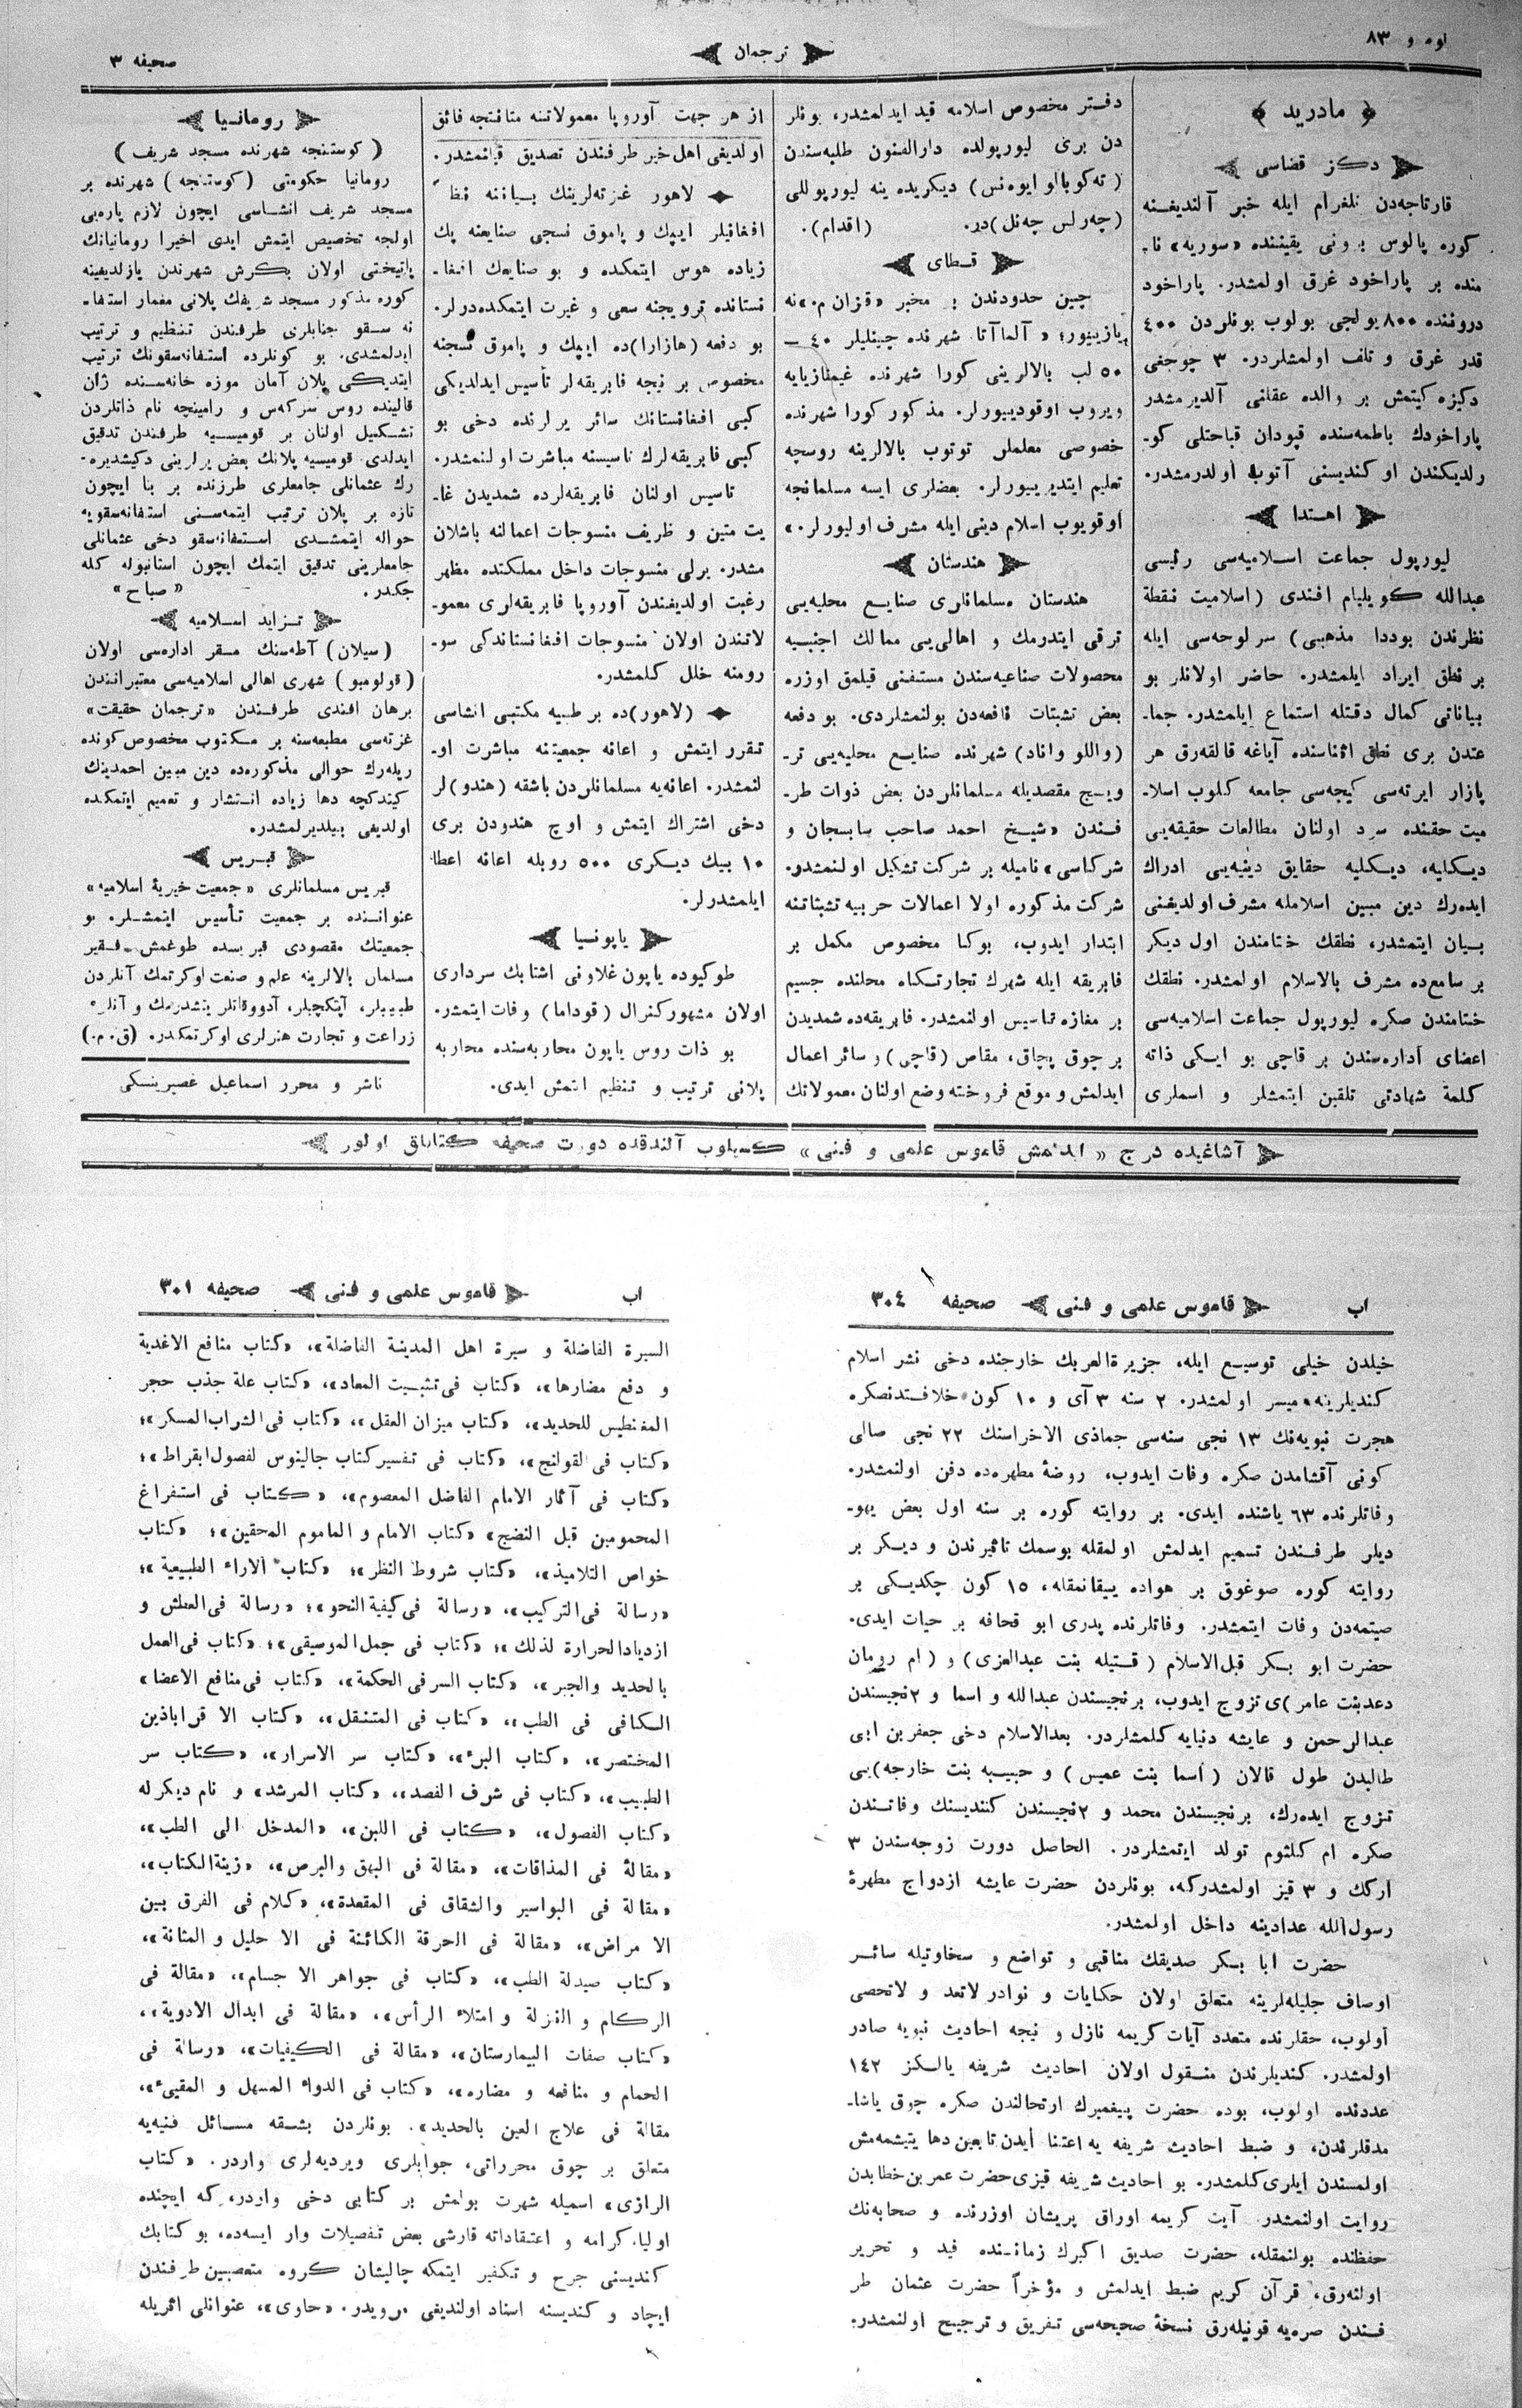 نومرو ٨٣
ترجمان
صحیفه ٣
مادرید
دكز قضاسی
قارتاجه‌دن تلغرام ایله خبر آلندیغنه
كوره پالوس برونی یقیننده «سوریه» نا-
منده بر پاراخود غرق اولمشدر. پاراخود
دروننده ٨٠٠ یولجی بولوب بونلردن ٤٠٠
قدر غرق و تلف اولمشلردر. ٣ چوجغی
دكیزه كیتمش بر والده عقلنی آلدیرمشدر
پاراخودك باطمه‌سنده قپودان قباحتلی كو-
رلدیكندن اوكندیسنی آتوب اولدرمشدر.
اهتدا
لیورپول جماعت اسلامیه‌سی رئیسی
عبدالله كویلیام افندی (اسلامیت نقطة
نظرندن بوددا مذهبی) سرلوحه‌سی ایله
بر نطق ایراد ایلمشدر. حاضر اولانلر بو
بیاناتی كمال دقتله استماع ایلمشدر. جما-
عتدن بری نطق اثناسنده آیاغه قالقه‌رق هر
پازار ایرته‌سی كیجه‌سی جامعه كلوب اسلا-
میت حقنده سرد اولنان مطالعات حقیقه‌یی
دیكلیه، دیكلیه حقایق دینیه‌یی ادراك
ایده‌رك دین مبین اسلامله مشرف اولدیغنی
بیان ایتمشدر، نطقك ختامندن اول دیكر
بر سامع‌ده مشرف بالاسلام اولمشدر. نطقك
ختامندن صكره لیورپول جماعت اسلامیه‌سی
اعضای اداره‌سندن بر قاچی بو ایكی ذاته
كلمۀ شهادتی تلقین ایتمشلر و اسملری
دفتر مخصوص اسلامه قید ایدلمشدر، بونلر
دن بری لیورپولده دارالفنون طلبه‌سندن
(ته‌كوبااو ایوه‌نس) دیكریده ینه لیورپوللی
(چه‌رلس چه‌نل)در. (اقدام).
قطای
چین حدودندن بر مخبر «قزان م.»نه
یازییور؛ «آلماآتا شهرنده چینلیلر ٤٠ —
٥٠ لب بالالرینی كورا شهرنده غیمنازیایه
ویروب اوقودییورلر. مذكور كورا شهرنده
خصوصی معلملر توتوب بالالرینه روسچه
تعلیم ایتدیرییورلر. بعضلری ایسه مسلمانجه
اوقویوب اسلام دینی ایله مشرف اولیورلر.»
هندستان
هندستان مسلمانلری صنایع محلیه‌یی
ترقی ایتدرمك و اهالی‌یی ممالك اجنبیه
محصولات صناعیه‌سندن مستغنی قیلمق اوزره
بعض تشبثات نافعه‌دن بولنمشلردی. بو دفعه
(واللو واناد) شهرنده صنایع محلیه‌یی تر-
ویج مقصدیله مسلمانلردن بعض ذوات طر-
فندن «شیخ احمد صاحب سابسجان و
شركاسی» نامیله بر شركت تشكیل اولنمشدر.
شركت مذكوره اولا اعمالات حربیه تشبثاتنه
ابتدار ایدوب، بوكا مخصوص مكمل بر
فابریقه ایله شهرك تجارتكاه محلنده جسیم
بر مغازه تأسیس اولنمشدر. فابریقه‌ده شمدیدن
بر چوق پچاق، مقاص (قاچی) و سائر اعمال
ایدلمش و موقع فروخته وضع اولنان معمولاتك
از هر جهت آوروپا معمولاتنه متانتجه فائق
اولدیغی اهل خبر طرفندن تصدیق قیلنمشدر.
لاهور غزته‌لرینك بیاننه نظ
افغانیلر ایپك و پاموق نسجی صنایعنه پك
زیاده هوس ایتمكده و بو صنایعك افغا-
نستانده ترویجنه سعی و غیرت ایتمكده‌درلر.
بو دفعه (هازارا)ده ایپك و پاموق نسجنه
مخصوص بر نیجه فابریقه‌لر تأسیس ایدلدیكی
كبی افغانستانك سائر یرلرنده دخی بو
كبی فابریقه‌لرك تاسیسنه مباشرت اولنمشدر.
تاسیس اولنان فابریقه‌لرده شمدیدن غا-
یت متین و ظریف منسوجات اعمالنه باشلان
مشدر. یرلی منسوجات داخل مملكتده مظهر
رغبت اولدیغندن آوروپا فابریقه‌لری معمو-
لاتندن اولان منسوجات افغانستاندكی سو-
رومنه خلل كلمشدر.
(لاهور)ده بر طبیه مكتبی انشاسی
تقرر ایتمش و اعانه جمعیتنه مباشرت او-
لنمشدر. اعانه‌یه مسلمانلردن باشقه (هندو)لر
دخی اشتراك ایتمش و اوچ هندودن بری
١٠ بیك دیكری ٥٠٠ روبله اعانه اعطا
ایلمشدرلر.
یاپونیا
طوكیوده یاپون غلاونی اشتابك سرداری
اولان مشهور كنرال (قوداما) وفات ایتمشدر.
بو ذات روس یاپون محاربه‌سنده محاربه
پلانی ترتیب و تنظیم ایتمش ایدی.
رومانیا
(كوستنجه شهرنده مسجد شریف)
رومانیا حكومتی (كوستنجه) شهرنده بر
مسجد شریف انشاسی ایچون لازم پاره‌یی
اولجه تخصیص ایتمش ایدی اخیرا رومانیانك
پایتختی اولان بكرش شهرندن یازلدیغینه
كوره مذكور مسجد شریفك پلانی معمار استفا-
نه سقو جنابلری طرفندن تنظیم و ترتیب
ایدلمشدی. بو كونلرده استفانه‌سقونك ترتیب
ایتدیكی پلان آمان موزه خانه‌سنده ژان
قالینده روس سركه‌س و رامینجه نام ذاتلردن
تشكیل اولنان بر قومیسیه طرفندن تدقیق
ایدلدی. قومیسیه پلانك بعض یرلرینی دكیشدیره-
رك عثمانلی جامعلری طرزنده بر بنا ایچون
تازه بر پلان ترتیب ایتمه‌سنی استفانه‌سقویه
حواله ایتمشدی. استفانه‌سقو دخی عثمانلی
جامعلرینی تدقیق ایتمك ایچون استانبوله كله
جكدر. «صباح»
تزاید اسلامیه
(سیلان) آطه‌سنك مقر اداره‌سی اولان
(قولومبو) شهری اهالی اسلامیه‌سی معتبرانندن
برهان افندی طرفندن «ترجمان حقیقت»
غزته‌سی مطبعه‌سنه بر مكتوب مخصوص كونده
ریله‌رك حوالی مذكوره‌ده دین مبین احمدینك
كیتدكچه دها زیاده انتشار و تعمیم ایتمكده
اولدیغی بیلدیرلمشدر.
قبریس
قبریس مسلمانلری «جمعیت خیریۀ اسلامیه»
عنواننده بر جمعیت تأسیس ایتمشلر. بو
جمعیتك مقصودی قبریسده طوغمش فقیر
مسلمان بالالرینه علم و صنعت اوكرتمك آنلردن
طبیبلر، آپتكچیلر، آدووقاتلر یتشدرمك و آنلره
زراعت و تجارت هنرلری اوكرتمكدر. (ق. م.)
ناشر و محرر اسماعیل غصپرینسكی
آشاغیده درج «ایدلمش قاموس علمی و فنی» كسیلوب آلندقده دورت صحیفه كتابلق اولور
اب قاموس علمی و فنی صحیفه ٣٠٤
خیلدن خیلی توسیع ایله، جزیرةالعربك خارجنده دخی نشر اسلام
كندیلرینه میسر اولمشدر. ٢ سنه ٣ آی و ١٠ كون خلافتدنصكره
هجرت نبویه‌نك ١٣ نجی سنه‌سی جماذی الاخراسنك ٢٢ نجی صالی
كونی آقشامدن صكره وفات ایدوب، روضۀ مطهره‌ده دفن اولنمشدر.
وفاتلرنده ٦٣ یاشنده ایدی. بر روایته كوره بر سنه اول بعض یهو-
دیلر طرفندن تسمیم ایدلمش اولمقله بوسمك تاثیرندن و دیكر بر
روایته كوره صوغوق بر هواده ییقانمقله، ١٥ كون چكدیكی بر
صیتمه‌دن وفات ایتمشدر. وفاتلرنده پدری ابو قحافه بر حیات ایدی.
حضرت ابو بكر قبل‌الاسلام (قتیله بنت عبدالعزی) و (ام رومان
دعدبنت عامر)ی تزوج ایدوب، برنجیسندن عبدالله و اسما و ٢نجیسندن
عبدالرحمن و عایشه دنیایه كلمشلردر. بعدالاسلام دخی جعفر بن ابی
طالبدن طول قالان (اسما بنت عمیس) و حبیبه بنت خارجه)یی
تزوج ایده‌رك، برنجیسندن محمد و ٢نجیسندن كنندیسنك وفاتندن
صكره ام كلثوم تولد ایتمشلردر. الحاصل دورت زوجه‌سندن ٣
ارك‍ك و ٣ قیز اولمشدركه، بونلردن حضرت عایشه ازدواج مطهرۀ
رسول‌الله عدادینه داخل اولمشدر.
حضرت ابا بكر صدیقك مناقبی و تواضع و سخاوتیله سائر
اوصاف جلیله‌لرینه متعلق اولان حكایات و نوادر لاتعد و لاتحصی
اولوب، حقلرنده متعدد آیات كریمه نازل و نیجه احادیث نبویه صادر
اولمشدر. كندیلرندن منقول اولان احادیث شریفه یالكز ١٤٢
عددنده اولوب، بوده حضرت پیغمبرك ارتحالندن صكره چوق یاشا-
مدقلرندن، و ضبط احادیث شریفه یه اعتنا ایدن تابعین دها یتیشمه‌مش
اولمسندن ایلری كلمشدر. بو احادیث شریفه قیزی حضرت عمر بن خطابدن
روایت اولنمشدر. آیت كریمه اوراق پریشان اوزرنده و صحابه‌نك
حفظنده بولنمقله، حضرت صدیق اكبرك زماننده قید و تحریر
اولنه‌رق، قرآن كریم ضبط ایدلمش و مؤخراً حضرت عثمان طر
فندن صره‌یه قونیله‌رق نسخۀ صحیحه‌سی تفریق و ترجیح اولنمشدر.
اب قاموس علمی و فنی صحیفه ٣٠١
السیرة الفاضلة و سیرة اهل المدینة الفاضلة»، «كتاب منافع الاغذیة
و دفع مضارها»، «كتاب فی تثبیت المعاد»، «كتاب علة جذب حجر
المغنطیس للحدید»، «كتاب میزان العقل»، «كتاب فی الشراب المسكر»؛
«كتاب فی القولنج»، «كتاب فی تفسیر كتاب جالینوس لفصول ابقراط»؛
«كتاب فی آثار الامام الفاضل المعصوم»، «كتاب فی استفراغ
المحمومین قبل النضج» «كتاب الامام و الماموم المحقین»؛ «كتاب
خواص التلامیذ»، «كتاب شروط النظر»؛ «كتاب الاراء الطبیعیة»؛
«رسالة فی التركیب»، «رسالة فی كیفیة النحو»؛ «رسالة فی العطش و
ازدیادالحرارة لذلك»؛ «كتاب فی جمل الموسیقی»؛ «كتاب فی العمل
بالحدید والجبر»، «كتاب السر فی الحكمة»، «كتاب فی منافع الاعضا»
الكافی فی الطب»، «كتاب فی المتنقل»، «كتاب الا قراباذین
المختصر»، «كتاب البرء»، «كتاب سر الاسرار»، «كتاب سر
الطبیب»، «كتاب فی شرف الفصد»، «كتاب المرشد» و نام دیكرله
«كتاب الفصول»، «كتاب فی اللبن»، «المدخل الی الطب»،
«مقالة فی المذاقات»، «مقالة فی البهق والبرص»، «زینةالكتاب»،
«مقالة فی البواسیر والشقاق فی المقعدة»، «كلام فی الفرق بین
الا مراض»، «مقالة فی الحرقة الكائنة فی الا حلیل و المثانة»،
«كتاب صیدلة الطب»، «كتاب فی جواهر الا جسام»، «مقالة فی
الزكام و النزلة و امتلاء الرأس»، «مقالة فی ابدال الادویة»،
«كتاب صفات البیمارستان»، «مقالة فی الكیفیات»، «رسالة فی
الحمام و منافعه و مضاره»، «كتاب فی الدواء المسهل و المقیئ»،
مقالة فی علاج العین بالحدید». بونلردن بشقه مسائل فنیه‌یه
متعلق بر چوق محرراتی، جوابلری ویردیه‌لری واردر. «كتاب
الرازی» اسمیله شهرت بولمش بر كتابی دخی واردر، كه ایچنده
اولیاء كرامه و اعتقاداته قارشی بعض تفصیلات وار ایسه‌ده، بو كتابك
كندیسنی جرح و تكفیر ایتمكه چالیشان كروه متعصبین طرفندن
ایجاد و كندیسنه اسناد اولندیغی مرویدر. «حاوی»، عنوانلی اثریله